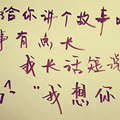 给你讲个故事
事有点长
我长话短说
"我想你